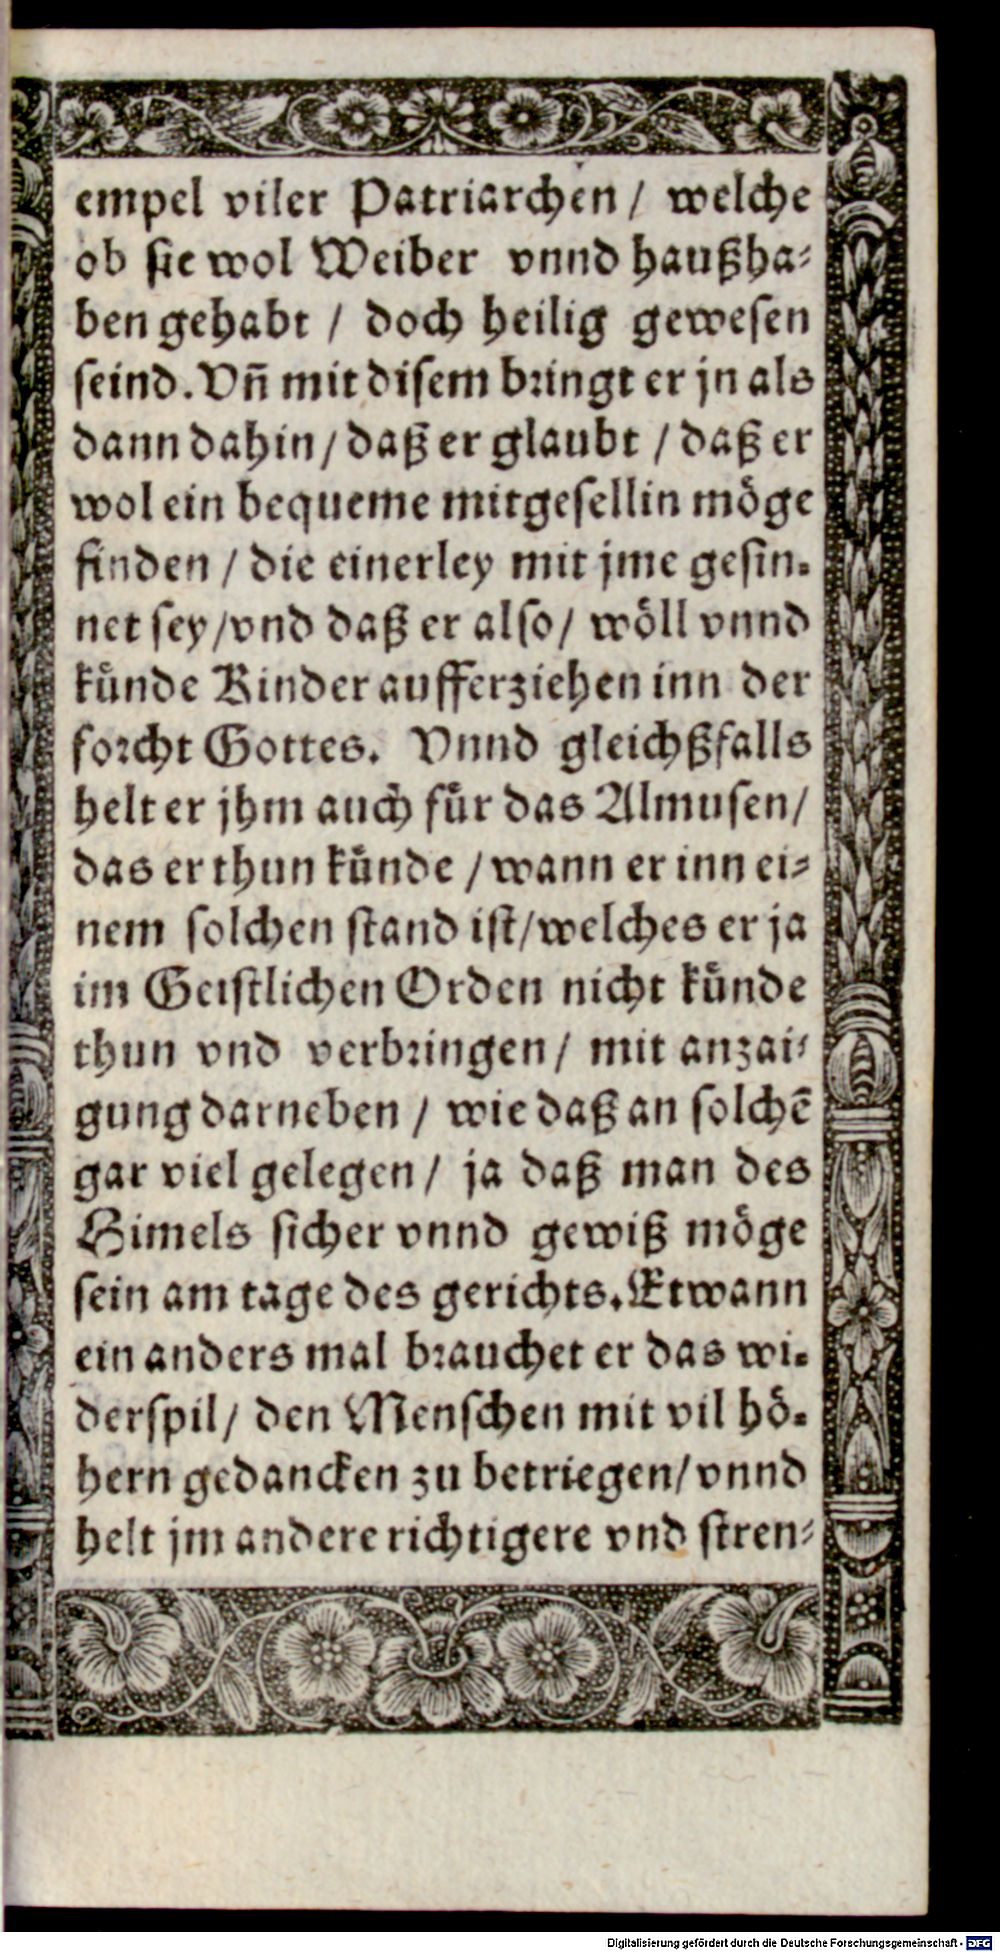 empel viler Patriarchen / welche
ob sie wol Weiber vnnd haußha-
ben gehabt / doch heilig gewesen
seind. Vñ mit disem bringt er jn als
dann dahin / daß er glaubt / daß er
wol ein bequeme mitgesellin möge
finden / die einerley mit jme gesin-
net sey / vnd daß er also / wöll vnnd
künde Kinder aufferziehen inn der
forcht Gottes. Vnnd gleichßfalls
helt er jhm auch für das Almusen /
das er thun künde / wann er inn ei-
nem solchen stand ist / welches er ja
im Geistlichen Orden nicht künde
thun vnd verbringen / mit anzai-
gung darneben / wie daß an solchē
gar viel gelegen / ja daß man des
Himels sicher vnnd gewiß möge
sein am tage des gerichts. Etwann
ein anders mal brauchet er das wi-
derspil / den Menschen mit vil hö-
hern gedancken zu betriegen / vnnd
helt jm andere richtigere vnd stren-
Digitalisierung gefördert durch die Deutsche Forschungsgemeinschaft - DFG